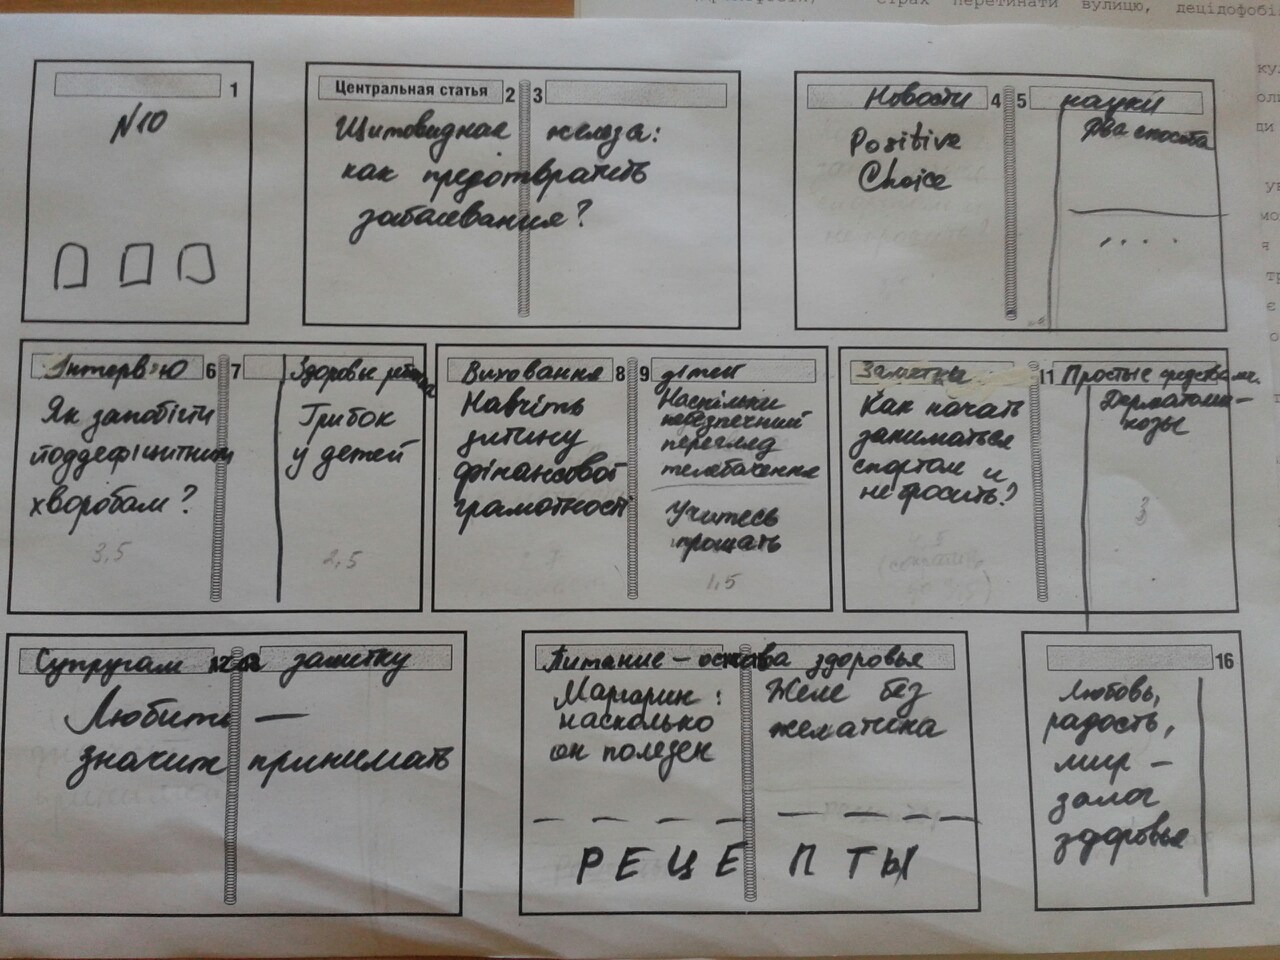 страх перетинати вулицю, децідофобі
1
№10
Центральная статья 2 3
Щитовидная железа:
как предотвратить
заболевания?
Новости 4 5 науки
Positive
Choice
Два способа
. . . .
Інтерв'ю 6 7 Здоровье ребенка
Як запобігти
йоддефіцитним
хворобам?
3,5
Грибок
у детей
2,5
Виховання 8 9 дітей
Навчіть
дитину
фінансової
грамотності
Наскільки
небезпечний
перегляд
телебачення
Учитесь
прощать
1,5
Заметки 11 Простые средства
Как начать
заниматься
спортом и
не бросить?
Дерматоми-
козы
3
Супругам 12 13 на заметку
Любить —
значит принимать
Питание – основа здоровья
Маргарин:
насколько
он полезен
Желе без
желатина
РЕЦЕПТЫ
16
Любовь,
радость,
мир –
залог
здоровья